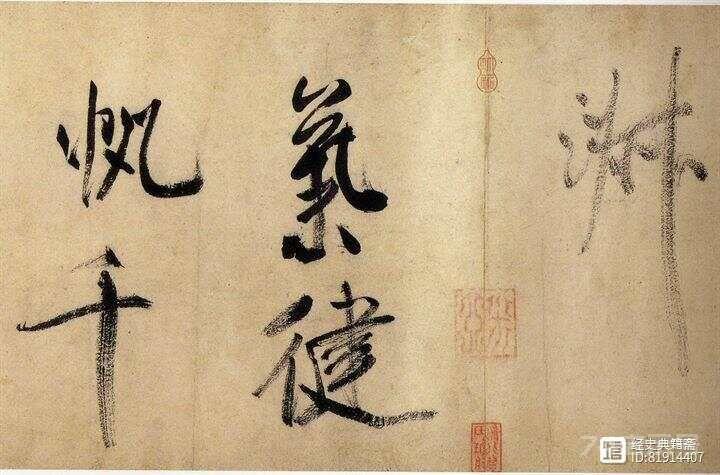 淑
氣健
帆千
经史典籍斋
ID:81914407